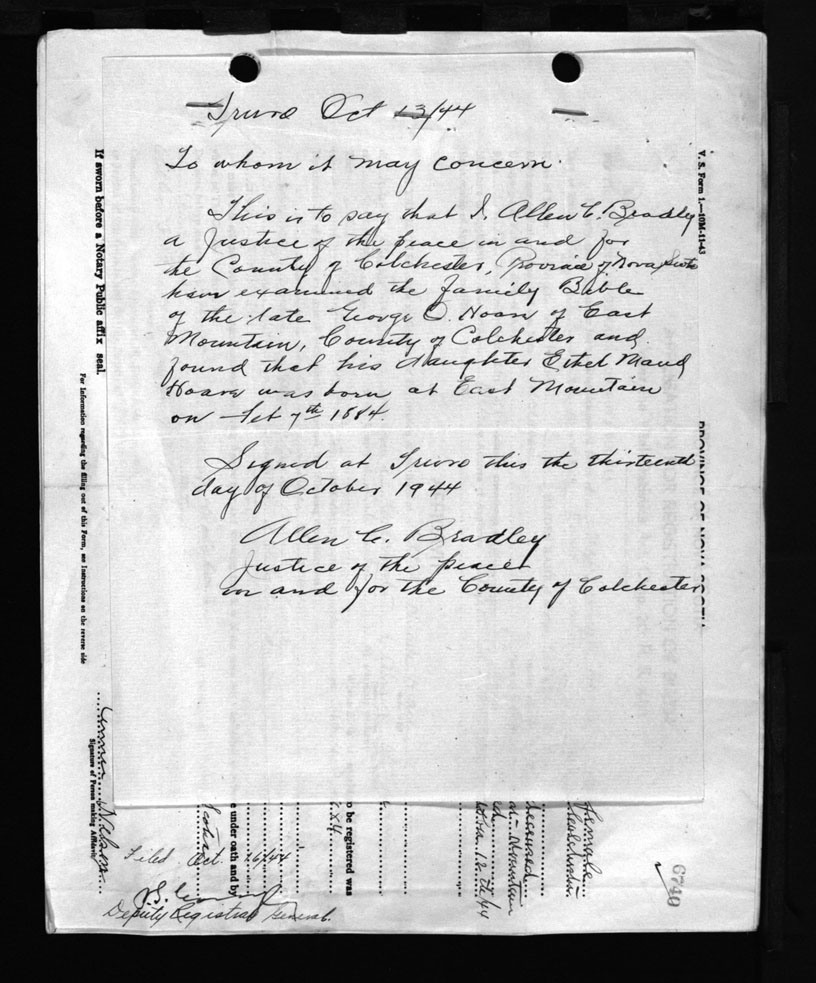 Truro Oct 13/44
To whom it may concern.
This is to say that I. Allen C. Bradley
a Justice of the peace in and for
the County of Colchester, Province of Nova Scotia
have examined the family Bible
of the late George O. Hoar of East
Mountain, County of Colchester and
found that his daughter Ethel Maud
Hoare was born at East Mountain
on 7th 1884.
Signed at Truro this the thirteenth
day of October 1944
Allen C. Bradley
Justice of the peace
in and for the County of Colchester
V. S. Form 1.—10M-11-43
PROVINCE OF NOVA SCOTIA
If sworn before a Notary Public affix seal.
For information regarding the filling out of this Form, see Instructions on the reverse side
Nelson
Signature of Person making Affidavit
e under oath and by
to be registered was
Female
Mountain
12th/44
Filed Oct 16/44
Deputy Registrar General.
6740